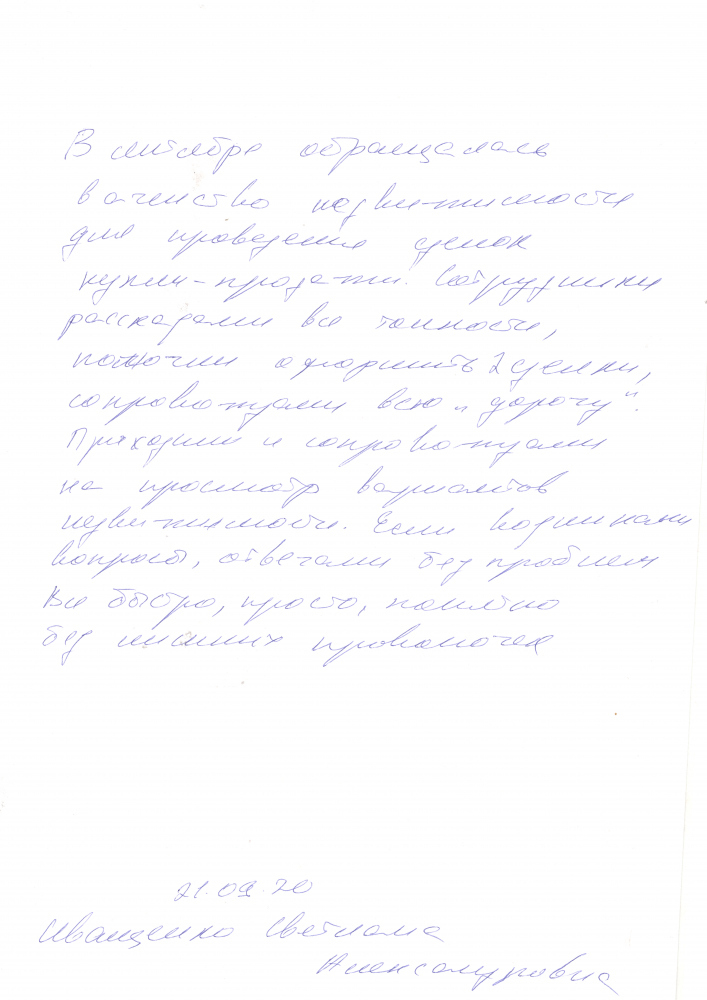 В сентябре обращалась
в агенство недвижимости
для проведения сделок
купли-продажи. Сотрудники
рассказали все тонкости,
помогли оформить 2 сделки,
сопровождали всю "дорогу".
Приходили и сопровождали
на просмотр вариантов
недвижимости. Если возникали
вопросы, отвечали без проблем
Все быстро, просто, понятно
без лишних проволочек
21.09.20
Иващенко Светлана
Александровна